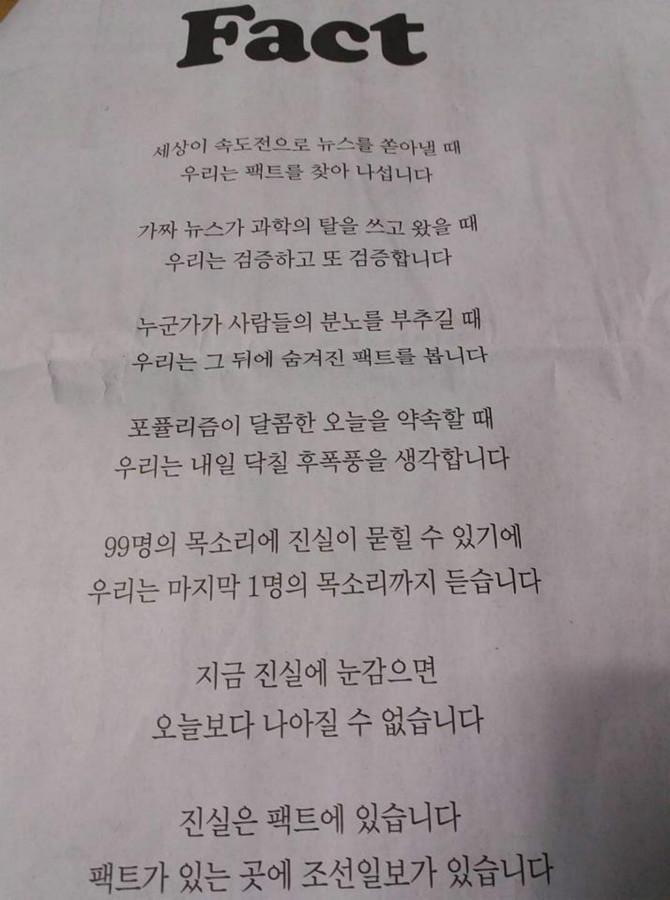 Fact
세상이 속도전으로 뉴스를 쏟아낼 때
우리는 팩트를 찾아 나섭니다
가짜 뉴스가 과학의 탈을 쓰고 왔을 때
우리는 검증하고 또 검증합니다
누군가가 사람들의 분노를 부추길 때
우리는 그 뒤에 숨겨진 팩트를 봅니다
포퓰리즘이 달콤한 오늘을 약속할 때
우리는 내일 닥칠 후폭풍을 생각합니다
99명의 목소리에 진실이 묻힐 수 있기에
우리는 마지막 1명의 목소리까지 듣습니다
지금 진실에 눈감으면
오늘보다 나아질 수 없습니다
진실은 팩트에 있습니다
팩트가 있는 곳에 조선일보가 있습니다